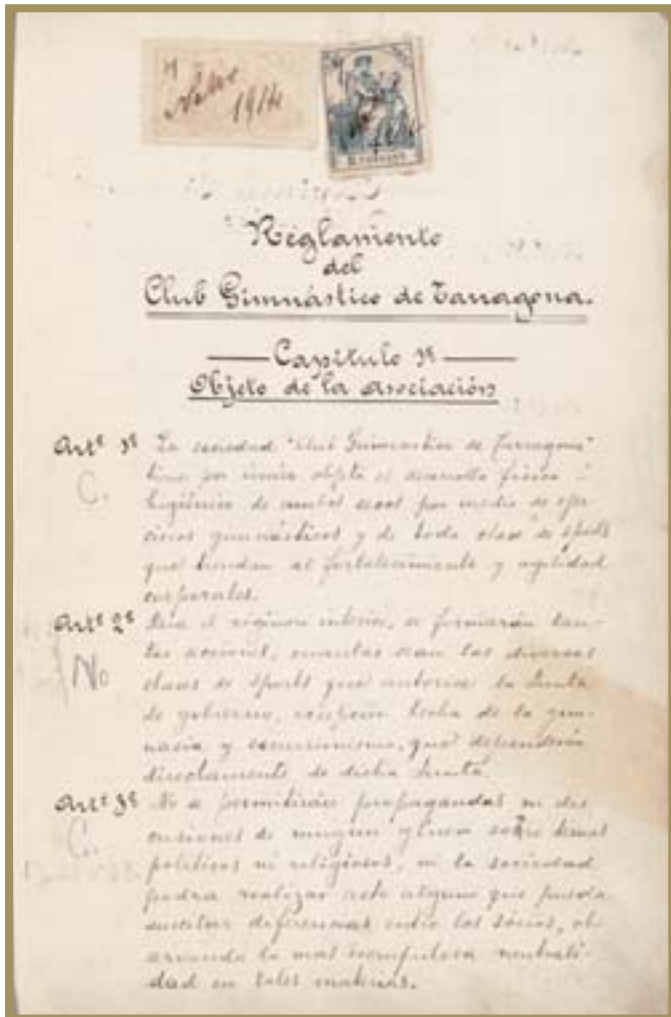 1914
Reglamento
del
Club Gimnástico de Tarragona.
Capitulo 1º
Objeto de la asociación
Artº 1º La sociedad "Club Gimnastico de Tarragona"
C. tiene por único objeto el desarrollo fisico é
higiénico de ambos sexos por medio de ejer-
cicios gimnásticos y de toda clase de sports
que tiendan al fortalecimiento y agilidad
corporales.
Artº 2º Para el régimen interior, se formarán tan-
No tas secciones, cuantas sean las diversas
clases de sports que autorice la Junta
de gobierno, excepción hecha de la gim-
nasia y excursionismo, que dependerán
directamente de dicha Junta.
Artº 3º No se permitirán propagandas ni dis-
C. cusiones de ningun género sobre temas
politicos ni religiosos, ni la sociedad
podrá realizar acto alguno que pueda
suscitar diferencias entre los sócios, ob-
servando la mas escrupulosa neutrali-
dad en tales materias.